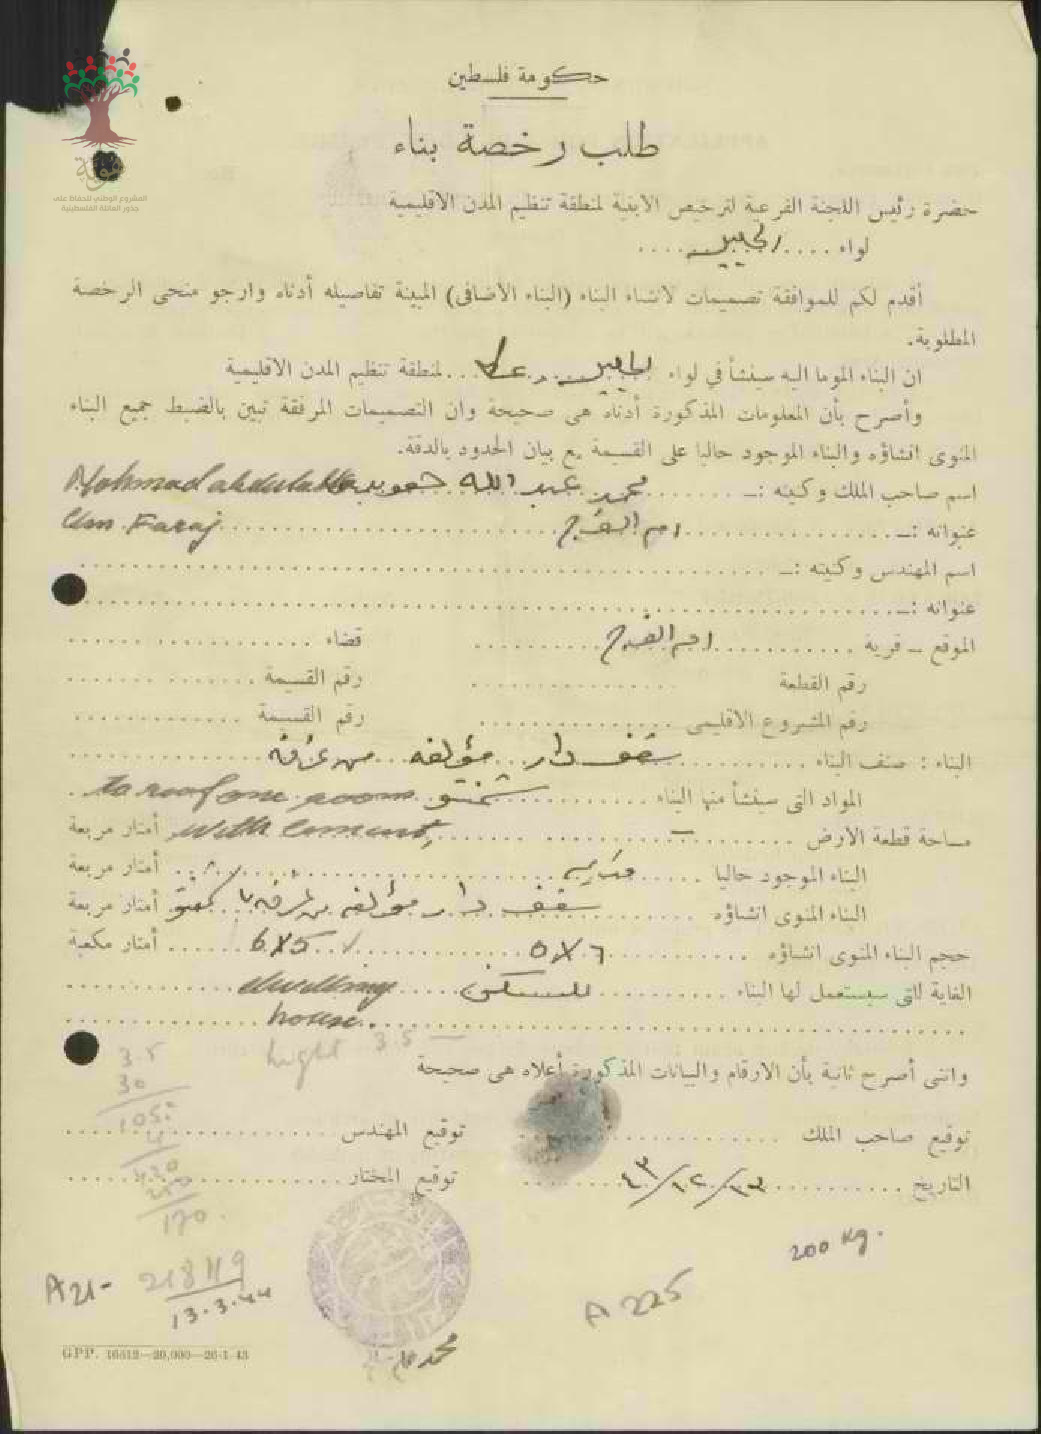 هوية
المشروع الوطني للحفاظ على
جذور العائلة الفلسطينية
حكومة فلسطين
طلب رخصة بناء
حضرة رئيس اللجنة الفرعية لترخيص الابنية لمنطقة تنظيم المدن الاقليمية
لواء .... الجليل ....
أقدم لكم للموافقة تصميمات لانشاء البناء (البناء الأضافى) المبينة تفاصيله أدناه وارجو منحى الرخصة
المطلوبة.
ان البناء الموما اليه سينشأ في لواء الجليل عكا ... لمنطقة تنظيم المدن الاقليمية
وأصرح بأن المعلومات المذكورة أدناه هى صحيحة وان التصميمات المرفقة تبين بالضبط جميع البناء
المنوى انشاؤه والبناء الموجود حاليا على القسيمة مع بيان الحدود بالدقة.
اسم صاحب الملك وكنيته :— محمد عبد الله Mohmad abdulalla
عنوانه :— ام الفرج Um Faraj
اسم المهندس وكنيته :—
عنوانه :—
الموقع — قرية ام الفرج قضاء
رقم القطعة رقم القسيمة
رقم المشروع الاقليمى رقم القسيمة
البناء : صنف البناء سقف دار مؤلفه من غرفه
المواد التى سينشأ منها البناء to roof one room
مساحة قطعة الارض — with cement أمتار مربعة
البناء الموجود حاليا أمتار مربعة
البناء المنوى انشاؤه سقف دار مؤلفه من غرفه أمتار مربعة
حجم البناء المنوى انشاؤه ٥X٦ 6X5 أمتار مكعبة
الغاية التى سيستعمل لها البناء للسكن dwelling
house
hight 3.5 —
3.5
30
105
وانى أصرح ثانية بأن الارقام والبيانات المذكورة أعلاه هى صحيحة
توقيع صاحب الملك توقيع المهندس
التاريخ ٢٣/١٢/٤٣ توقيع المختار
200 Kg.
A 225
A21-
13.3.44
GPP. 16612—20,000—26-1-43